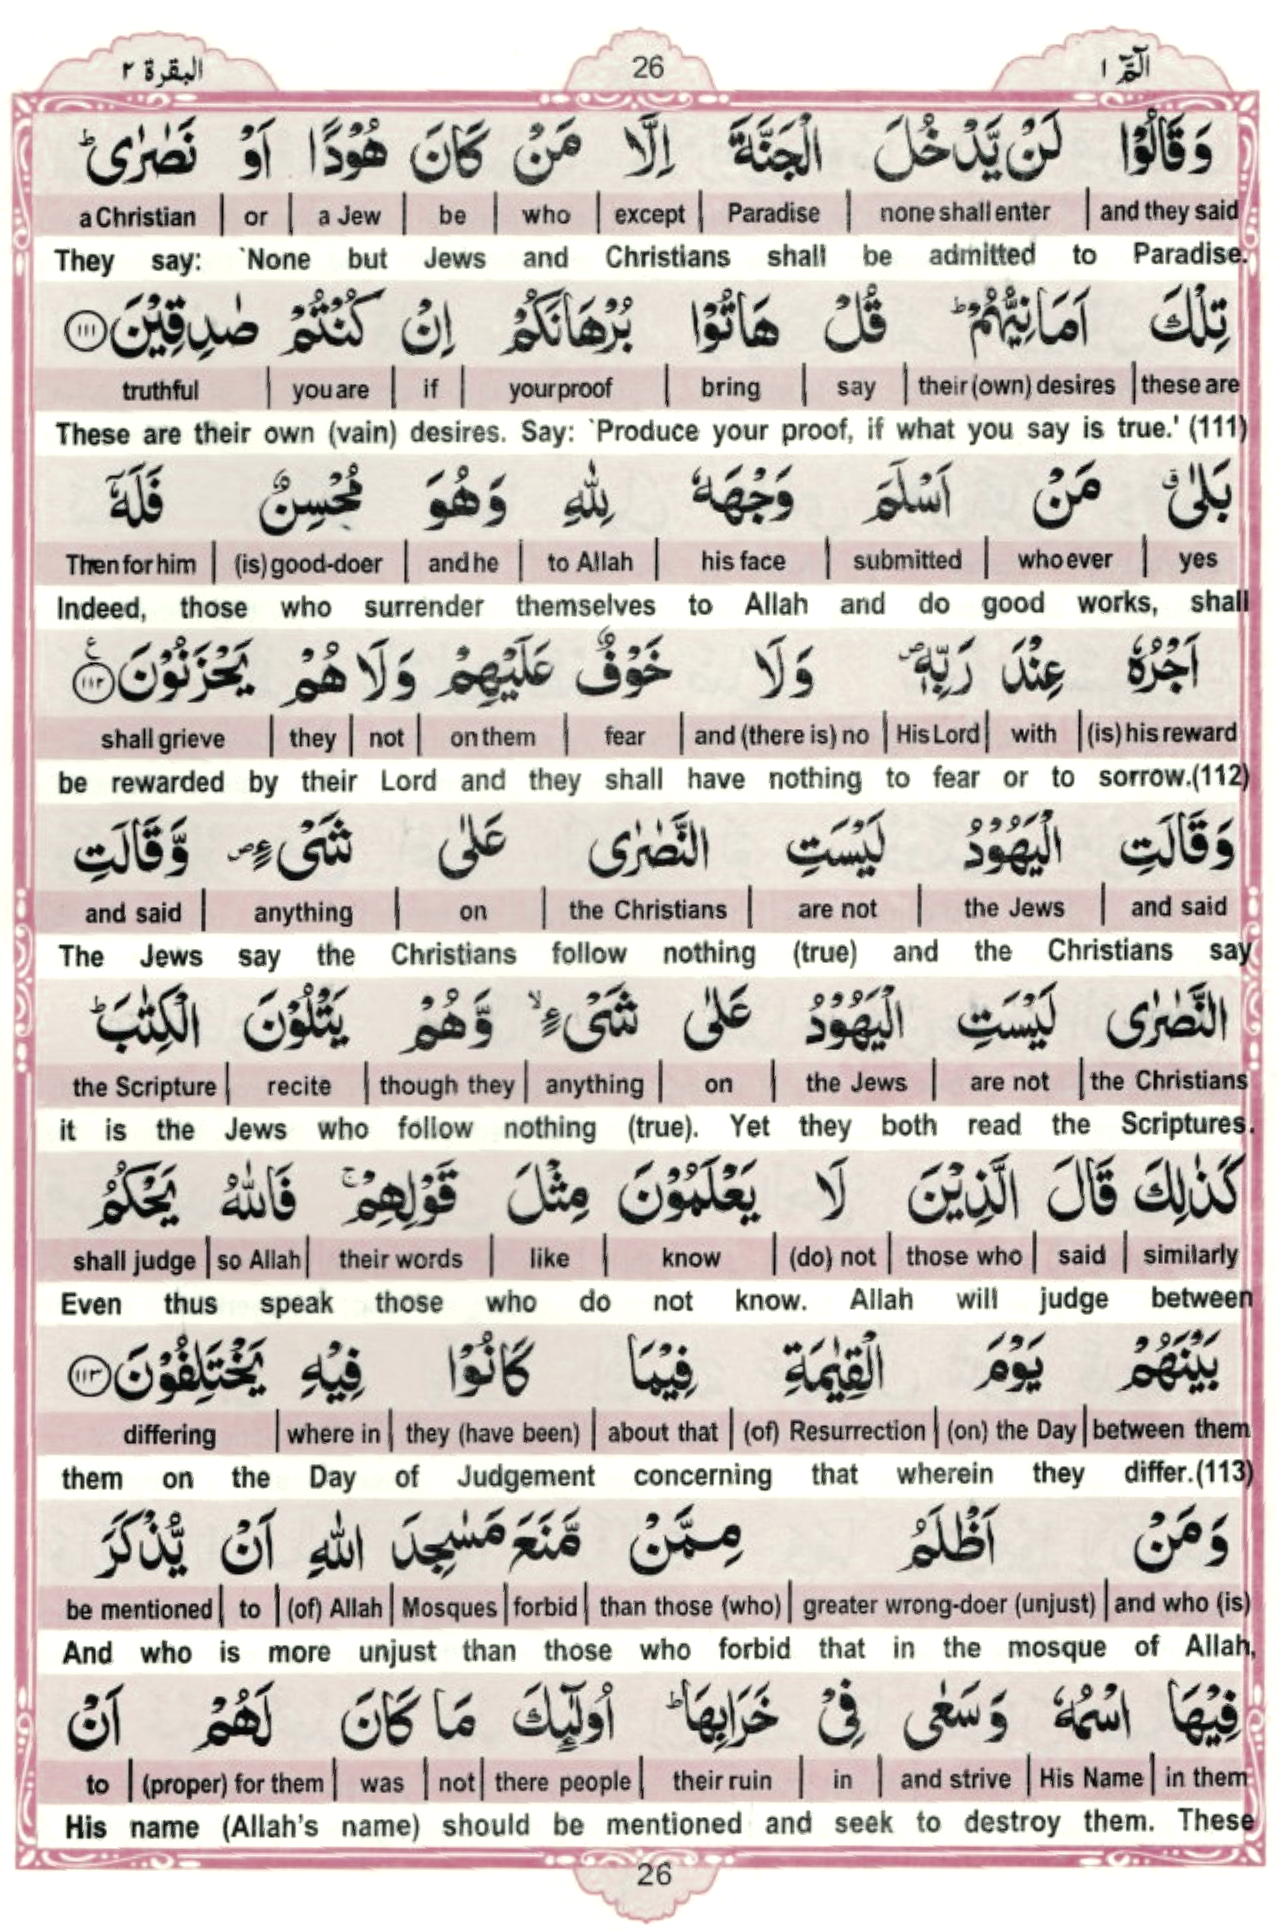 البقرة ٢ 26 الٓمّٓ ١
وَقَالُوْا لَنْ يَّدْخُلَ الْجَنَّةَ اِلَّا مَنْ كَانَ هُوْدًا اَوْ نَصٰرٰىؕ
a Christian | or | a Jew | be | who | except | Paradise | none shall enter | and they said
They say: `None but Jews and Christians shall be admitted to Paradise.
تِلْكَ اَمَانِيُّهُمْؕ قُلْ هَاتُوْا بُرْهَانَكُمْ اِنْ كُنْتُمْ صٰدِقِيْنَ ١١١
truthful | you are | if | your proof | bring | say | their (own) desires | these are
These are their own (vain) desires. Say: `Produce your proof, if what you say is true.' (111)
بَلٰىۗ مَنْ اَسْلَمَ وَجْهَهٗ لِلّٰهِ وَهُوَ مُحْسِنٌ فَلَهٗۤ
Then for him | (is) good-doer | and he | to Allah | his face | submitted | who ever | yes
Indeed, those who surrender themselves to Allah and do good works, shall
اَجْرُهٗ عِنْدَ رَبِّهٖ۪ وَلَا خَوْفٌ عَلَيْهِمْ وَلَا هُمْ يَحْزَنُوْنَ ١١٢ ع
shall grieve | they | not | on them | fear | and (there is) no | His Lord | with | (is) his reward
be rewarded by their Lord and they shall have nothing to fear or to sorrow.(112)
وَقَالَتِ الْيَهُوْدُ لَيْسَتِ النَّصٰرٰى عَلٰى شَىْءٍ۪ وَّقَالَتِ
and said | anything | on | the Christians | are not | the Jews | and said
The Jews say the Christians follow nothing (true) and the Christians say
النَّصٰرٰى لَيْسَتِ الْيَهُوْدُ عَلٰى شَىْءٍۙ وَّهُمْ يَتْلُوْنَ الْكِتٰبَؕ
the Scripture | recite | though they | anything | on | the Jews | are not | the Christians
it is the Jews who follow nothing (true). Yet they both read the Scriptures.
كَذٰلِكَ قَالَ الَّذِيْنَ لَا يَعْلَمُوْنَ مِثْلَ قَوْلِهِمْۚ فَاللّٰهُ يَحْكُمُ
shall judge | so Allah | their words | like | know | (do) not | those who | said | similarly
Even thus speak those who do not know. Allah will judge between
بَيْنَهُمْ يَوْمَ الْقِيٰمَةِ فِيْمَا كَانُوْا فِيْهِ يَخْتَلِفُوْنَ ١١٣
differing | where in | they (have been) | about that | (of) Resurrection | (on) the Day | between them
them on the Day of Judgement concerning that wherein they differ.(113)
وَمَنْ اَظْلَمُ مِمَّنْ مَّنَعَ مَسٰجِدَ اللّٰهِ اَنْ يُّذْكَرَ
be mentioned | to | (of) Allah | Mosques | forbid | than those (who) | greater wrong-doer (unjust) | and who (is)
And who is more unjust than those who forbid that in the mosque of Allah,
فِيْهَا اسْمُهٗ وَسَعٰى فِىْ خَرَابِهَاؕ اُولٰٓئِكَ مَا كَانَ لَهُمْ اَنْ
to | (proper) for them | was | not | there people | their ruin | in | and strive | His Name | in them
His name (Allah's name) should be mentioned and seek to destroy them. These
26